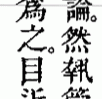 論。然執
為之。目